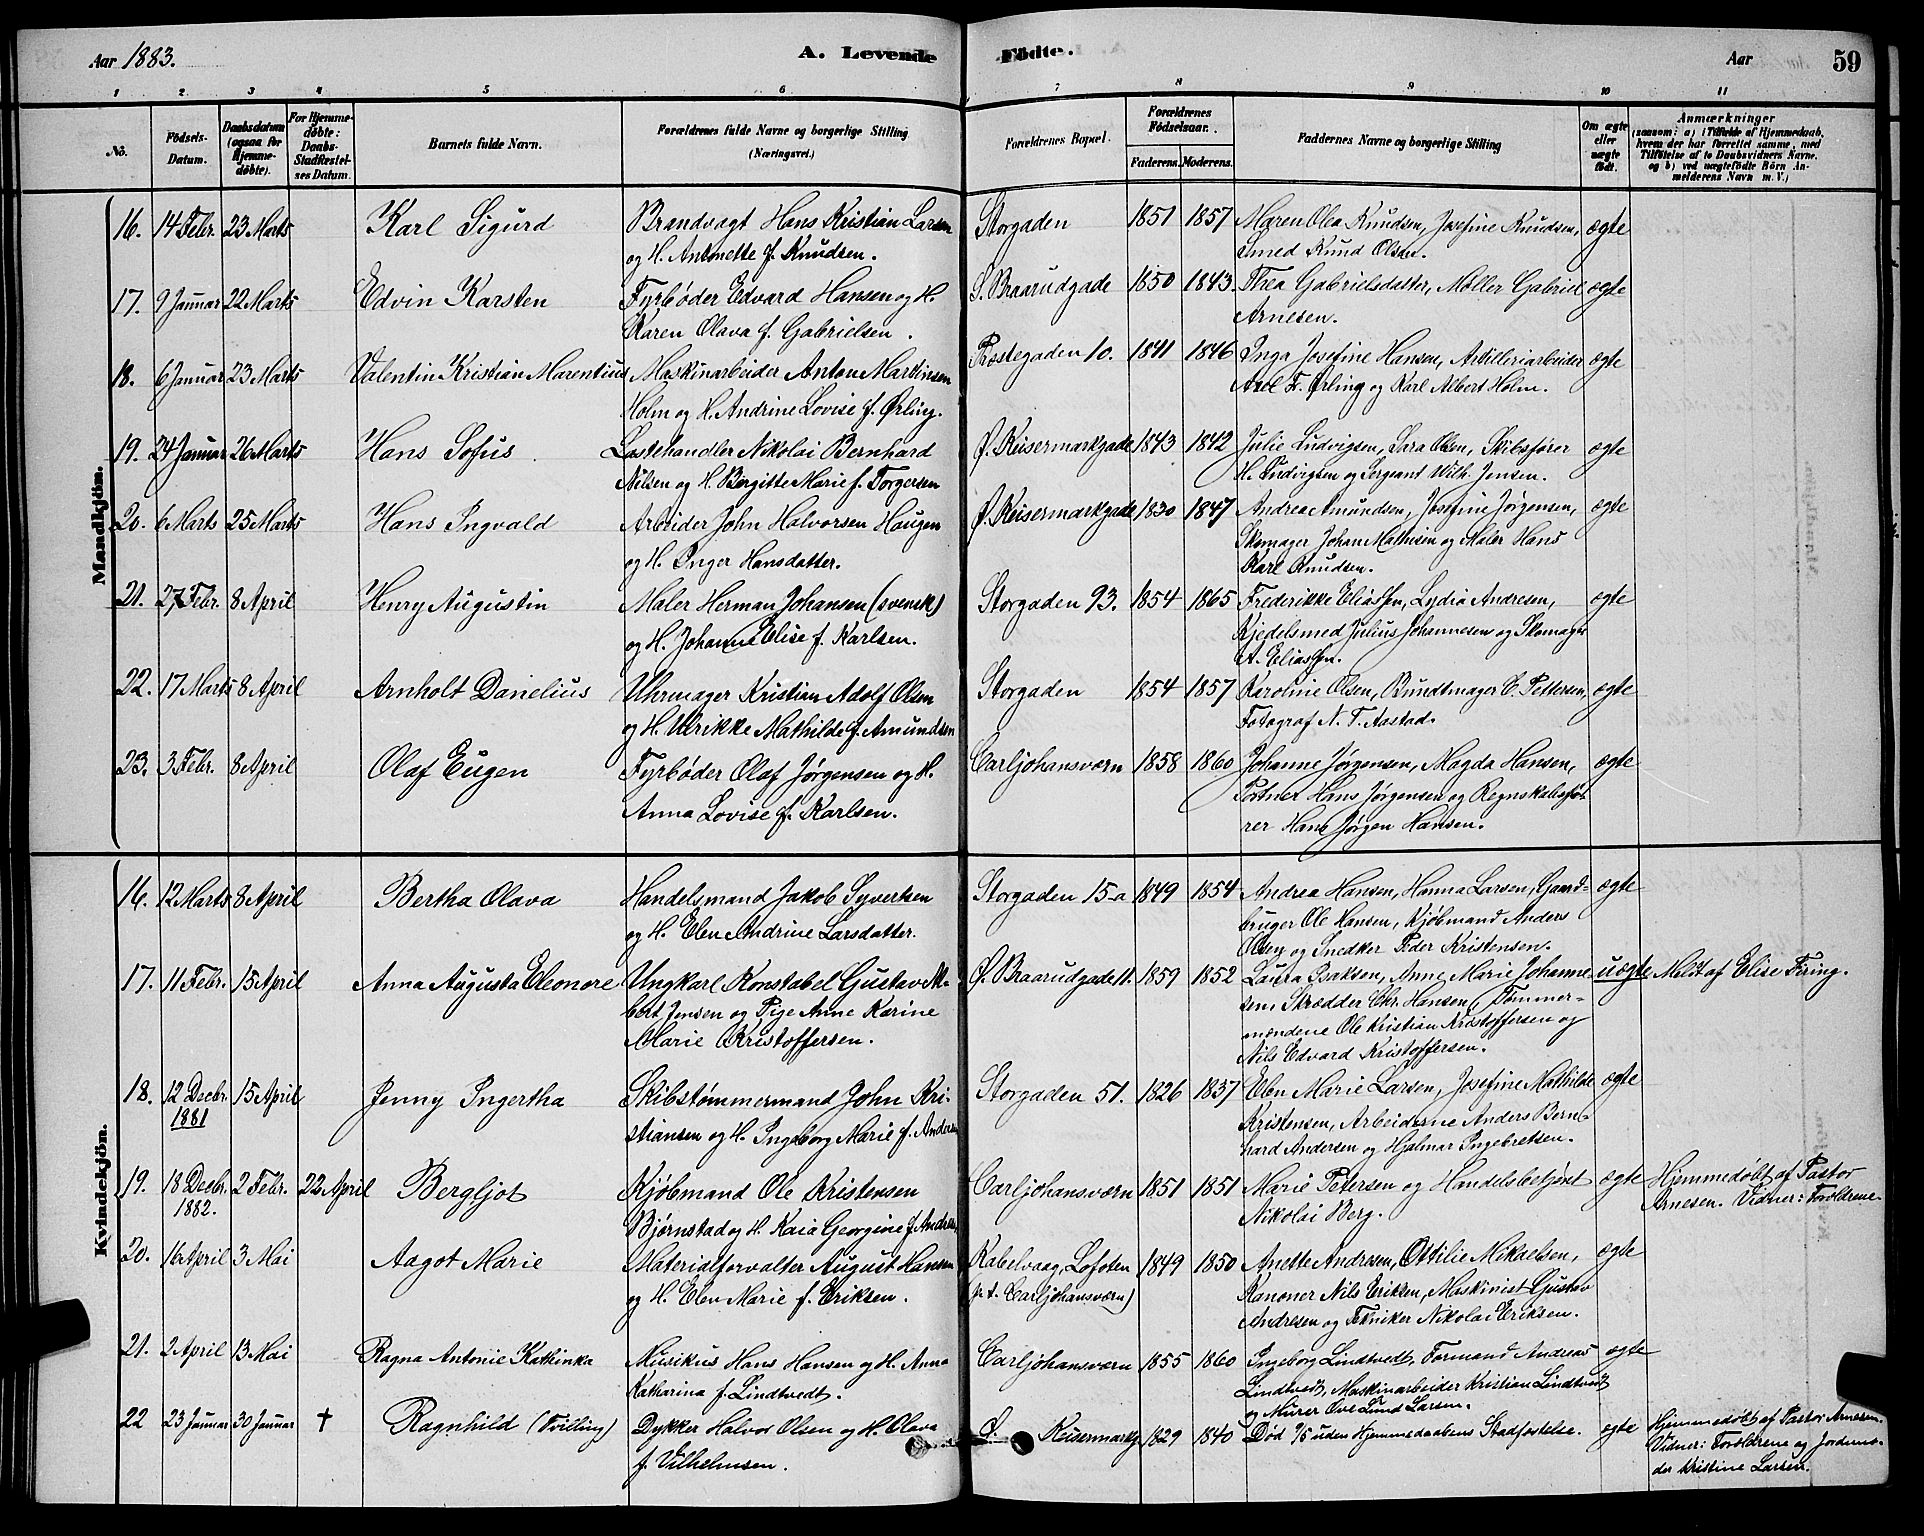 Aar 1883.
A. Levende Fødte.
Aar
59
1 2 3 4 5 6 7 8 9 10 11
No.
Födsels-
Datum.
Daabsdatum
(ogsaa for
Hjemme-
døbte).
For Hjemme-
døbte:
Daabs-
Stadfæstel-
ses Datum.
Barnets fulde Navn.
Forældrenes fulde Navne og borgerlige Stilling
(Næringsvei.)
Forældrenes Bopæl.
Forældrenes
Fødselsaar.
Faderens. Moderens.
Faddernes Navne og borgerlige Stilling
Om ægte
eller
uægte
født.
Anmærkninger
(saasom: a) i Tilfælde af Hjemmedaab,
hvem der har forrettet samme, med
Tilføielse af to Daabsvidners Navne,
og b) ved uægtefødte Børn An-
melderens Navn m. V.)
Mandkjön.
16. 14 Febr. 23 Marts Karl Sigurd Brandvagt Hans Kristian Larsen Storgaden 1851 1857 Maren Olea Knudsen, Josefine Knudsen, ægte
og H. Antonette f. Knudsen. Smed Knud Olsen.
17. 9 Januar 22 Marts Edvin Karsten Fyrbøder Edvard Hansen og H. S. Braarudgade 1850 1843. Thea Gabrielsdatter, Møller Gabriel ægte
Karen Olava f. Gabrielsen. Arnesen.
18. 6 Januar 23 Marts Valentin Kristian Marentius Maskinarbeider Anton Martinsen Præstegaden 10. 1841 1846 Inga Josefine Hansen, Artilleriarbeider ægte
Holm og H. Andrine Lovise f. Ørling. Axel F. Ørling og Karl Albert Holm.
19. 24 Januar 26 Marts Hans Sofus Lostehandler Nikolai Bernhard Ø. Keisermarkgade 1843 1842 Julie Ludvigsen, Sara Olsen, Skibsfører ægte
Nilsen og H. Birgitte Marie f. Torgersen H. Ludvigsen og Sergeant Wilh. Jensen.
20. 6 Marts 25 Marts Hans Ingvald Arbeider John Halvorsen Haugen Ø. Keisermarkgade 1830 1847 Andrea Amundsen, Josefine Jørgensen, ægte
og H. Inger Hansdatter. Skomager Johan Mathisen og Maler Hans
Karl Knudsen.
21. 27 Febr. 8 April Henry Augustin Maler Herman Johansen (svensk) Storgaden 93. 1854 1865 Frederikke Eliassen, Lydia Andresen, ægte
og H. Johanne Elise f. Karlsen. Kjedelsmed Julius Johannesen og Skomager
A. Eliassen.
22. 17 Marts 8 April Arnholt Danelius Uhrmager Kristian Adolf Olsen Storgaden 1854 1857 Karoline Olsen, Bundtmager C. Pettersen, ægte
og H. Ulrikke Mathilde f. Amundsen Fotograf N. T. Aastad.
23. 3 Febr. 8 April Olaf Eugen Fyrbøder Olaf Jørgensen og H. Carljohansværn 1858 1860 Johanne Jørgensen, Magda Hansen, ægte
Anna Lovise f. Karlsen. Portner Hans Jørgensen og Regnskabsfø-
rer Hans Jørgen Hansen.
Kvindekjön.
16. 12 Marts 8 April Bertha Olava Handelsmand Jakob Syvertsen Storgaden 15-a 1849 1854 Andrea Hansen, Hanna Larsen, Gaard- ægte
og H. Elen Andrine Larsdatter. bruger Ole Hansen, Kjøbmand Anders
Olsen og Snedker Peder Kristensen.
17. 11 Febr. 15 April Anna Augusta Eleonore Ungkarl Konstabel Gustav Al- Ø. Braarudgade 11. 1859 1852 Laura Isaksen, Anne Marie Johanne- uægte Meldt af Elise Firing.
bert Jensen og Pige Anne Karine sen, Skrædder Chr. Hansen, Tømmer-
Marie Kristoffersen. mændene Ole Kristian Kristoffersen og
Nils Edvard Kristoffersen.
18. 12 Decbr. 15 April Jenny Ingertha Skibstømmermand John Kri- Storgaden 51. 1826 1837 Elen Marie Larsen, Josefine Mathilde ægte
1881 stiansen og H. Ingeborg Marie f. Andersen Kristensen, Arbeiderne Anders Bern-
hard Andersen og Hjalmar Ingebretsen.
19. 18 Decbr. 2 Febr. 22 April Bergljot Kjøbmand Ole Kristensen Carljohansværn 1851 1851 Marie Petersen og Handelsbetjent ægte Hjemmedøbt af Pastor
1882. Bjørnstad og H. Kaia Georgine f. Andresen Nikolai Berg. Arnesen. Vidner: Forældrene.
20. 16 April 3 Mai Aagot Marie Materialforvalter August Hansen Kabelvaag, Lofoten 1849 1850 Anette Andresen, Ottilie Mikaelsen, ægte
og H. Elen Marie f. Eriksen. (p. t. Carljohansværn) Kanoner Nils Eriksen, Maskinist Gustav
Andresen og Tekniker Nikolai Eriksen.
21. 2 April 13 Mai Ragna Antonie Kathinka Musikus Hans Hansen og H. Anna Carljohansværn 1855 1860 Ingeborg Lindtvedt, Formand Andreas ægte
Katharina f. Lindtvedt. Lindtvedt, Maskinarbeider Kristian Lindtvedt
og Murer Ove Lund Larsen.
22 23 Januar 30 Januar † Ragnhild (Tvilling) Dykker Halvor Olsen og H. Olava Ø. Keisermarkg. 1829 1840 Død 9/5 uden Hjemmedaabens Stadfæstelse. ægte Hjemmedøbt af Pastor Arnesen.
f. Vilhelmsen. Vidner: Forældrene og Jordemo-
der Kristine Larsen.